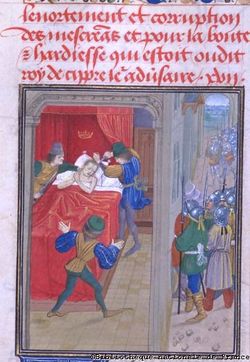 lenortement et corruption
des mescreãs et pour la bonte
z hardiesse qui estoit oudit
roy de cippre
Bibliothèque nationale de France